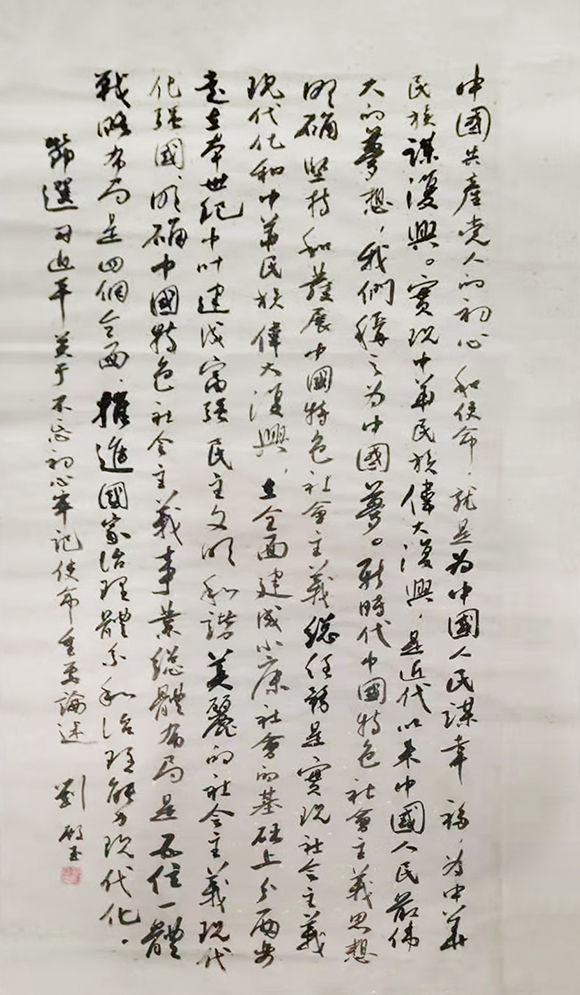 中國共產党人的初心和使命，就是为中國人民謀幸福，为中華
民族謀復興。實現中華民族偉大復興，是近代以来中國人民最偉
大的夢想，我們稱之为中國夢。新時代中國特色社會主義思想
明确坚持和發展中國特色社會主義總任務是實現社会主義
現代化和中華民族偉大復興，在全面建成小康社會的基础上分两步
走在本世紀中叶建成富強民主文明和諧美麗的社会主義現代
化強國，明确中國特色社会主義事業總體布局是五位一體
戰略布局是四個全面，推進國家治理體系和治理能力現代化。
節選習近平关于不忘初心牢記使命重要論述 劉